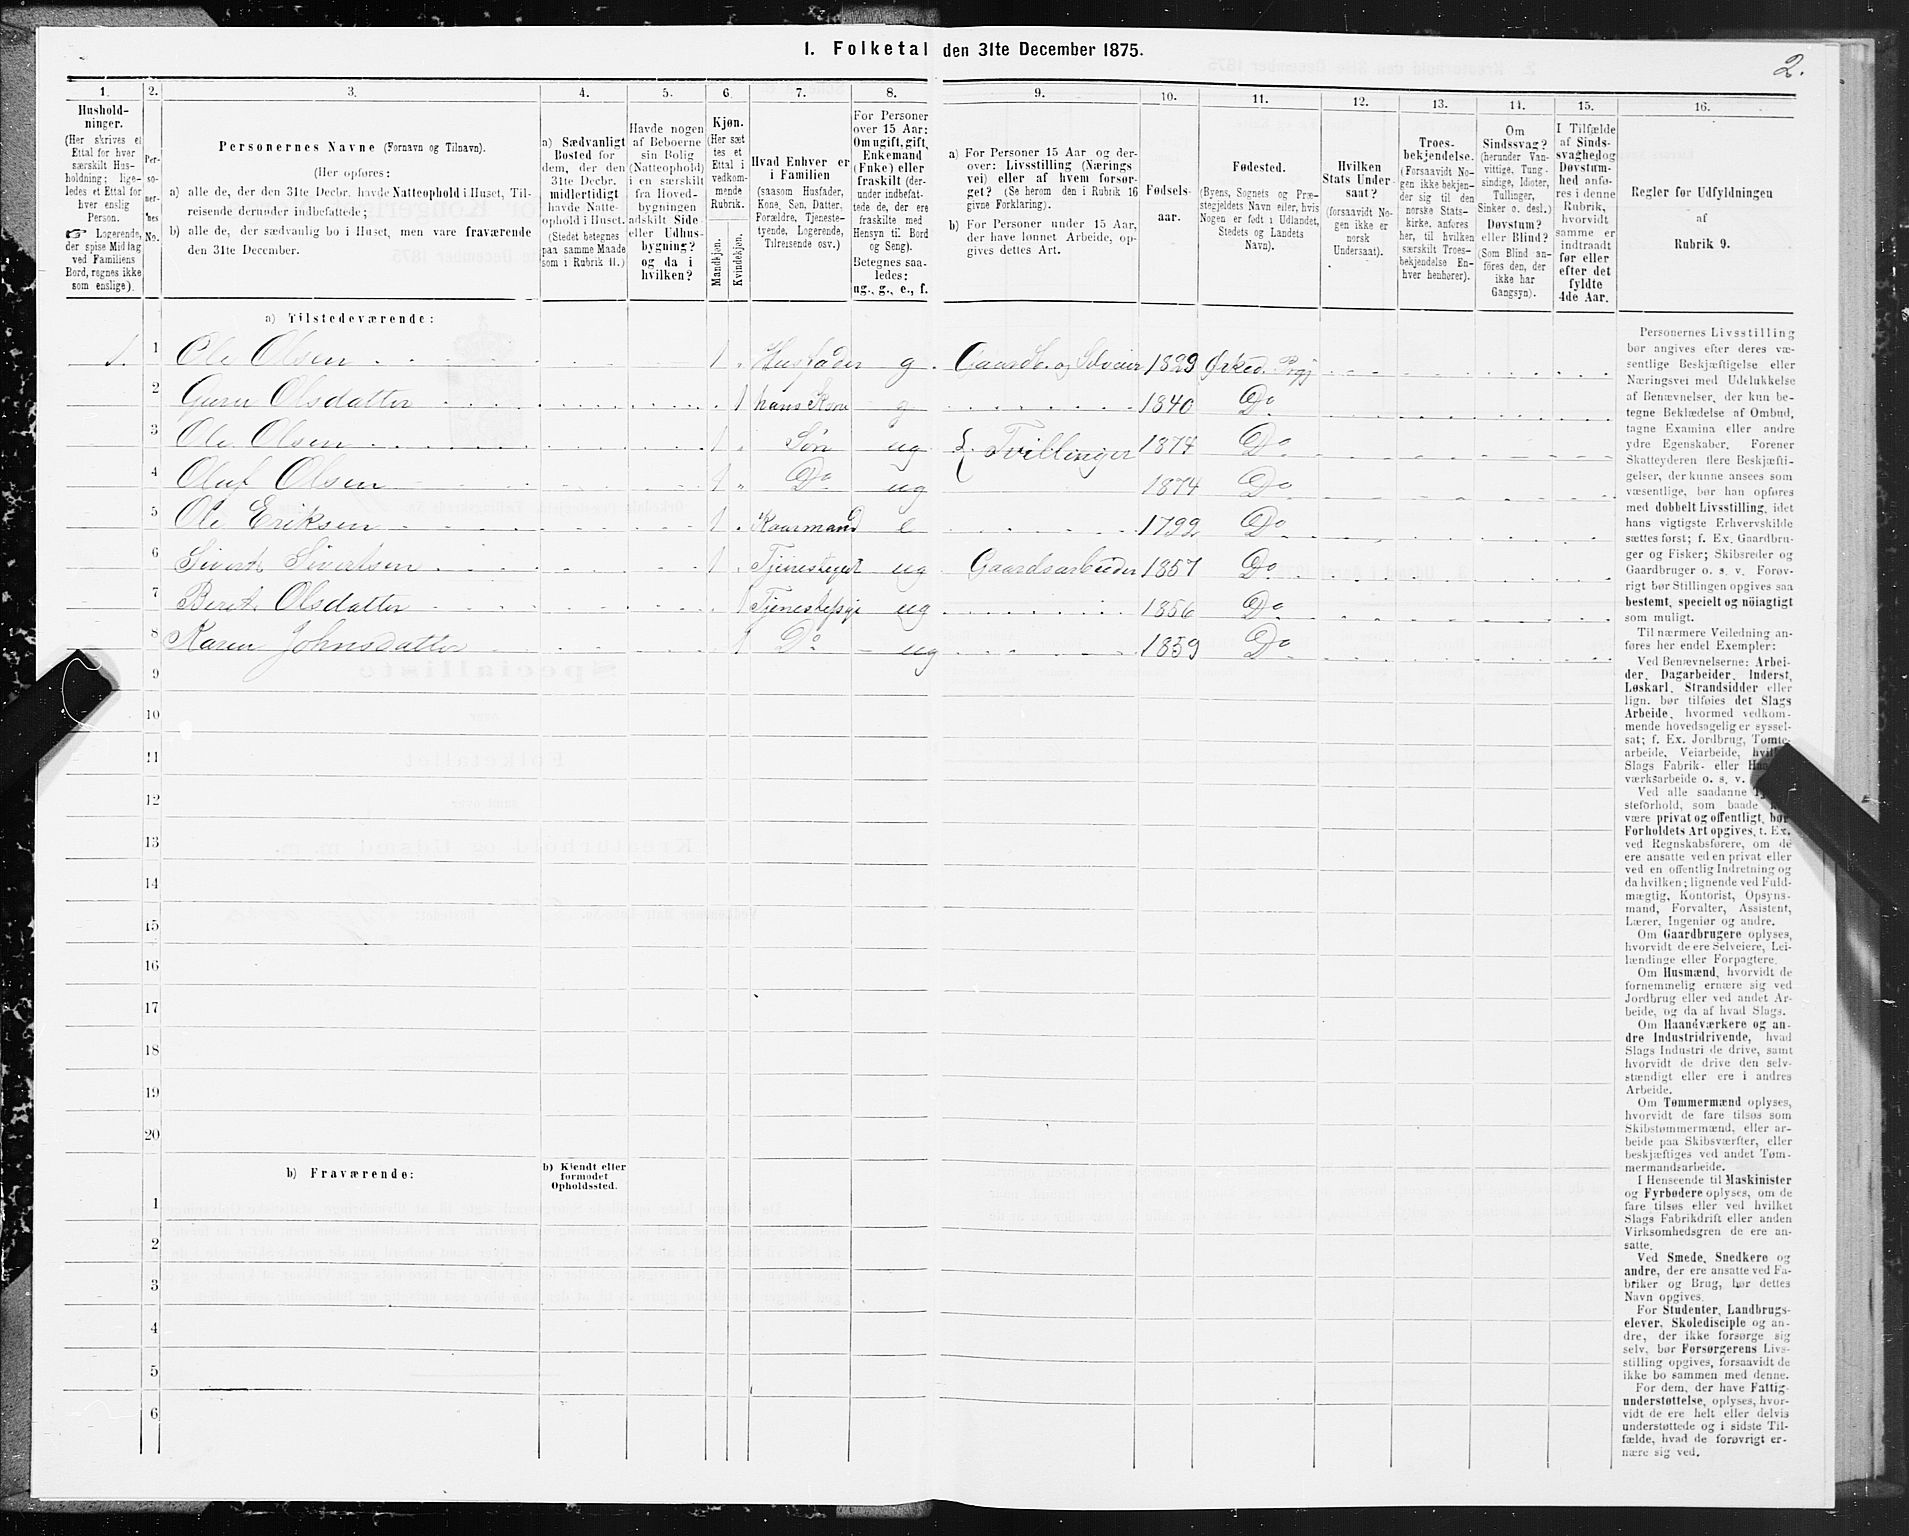 I. Folketal den 31te December 1875.
2.
1.
Hushold-
ninger.
(Her skrives et
Ettal for hver
særskilt Hus-
holdning; lige-
ledes et Ettal for
hver enslig
Person.
☞ Logerende,
der spise Middag
ved Familiens
Bord, regnes ikke
som enslige).
2.
Per-
so-
ner-
nes
No.
3.
Personernes Navne (Fornavn og Tilnavn).
(Her opføres:
a) alle de, der den 31te Decbr. havde Natteophold i Huset, Til-
reisende derunder indbefattede;
b) alle de, der sædvanlig bo i Huset, men vare fraværende
den 31te December.
4.
a) Sædvanligt
Bosted for
dem, der den
31te Decbr.
midlertidigt
havde Natte-
ophold i Huset.
(Stedet betegnes
paa samme Maade
som i Rubrik 11.)
5.
Havde nogen
af Beboerne
sin Bolig
(Natteophold)
i en særskilt
fra Hoved-
bygningen
adskilt Side-
eller Udhus-
bygning?
og da i
hvilken?
6.
Kjøn.
(Her sæt-
tes et
Ettal i
vedkom-
mende
Rubrik.
Mandkjøn.
Kvindekjøn.
7.
Hvad Enhver er
i Familien
(saasom Husfader,
Kone, Søn, Datter,
Forældre, Tjeneste-
tyende, Logerende,
Tilreisende osv.)
8.
For Personer
over 15 Aar:
Om ugift, gift,
Enkemand
(Enke) eller
fraskilt (der-
under indbefat-
tede de, der ere
fraskilte med
Hensyn til Bord
og Seng).
Betegnes saa-
ledes:
ug., g., e., f.
9.
a) For Personer 15 Aar og der-
over: Livsstilling (Nærings-
vei) eller af hvem forsør-
get? (Se herom den i Rubrik 16
givne Forklaring).
b) For Personer under 15 Aar,
der have lønnet Arbeide, op-
gives dettes Art.
10.
Fødsels-
aar.
11.
Fødested.
(Byens, Sognets og Præ-
stegjeldets Navn eller, hvis
Nogen er født i Udlandet,
Stedets og Landets
Navn).
12.
Hvilken
Stats Under-
saat?
(forsaavidt No-
gen ikke er
norsk
Undersaat).
13.
Troes-
bekjendelse.
(Forsaavidt No-
gen ikke bekjen-
der sig til den
norske Stats-
kirke, anføres
her, til hvilken
særskilt Troes-
bekjendelse En-
hver henhører).
14.
Om
Sindssvag?
(herunder Van-
vittige, Tung-
sindige, Idioter,
Tullinger,
Sinker o. desl.)
Døvstum?
eller Blind?
(Som Blind an-
føres den, der
ikke har
Gangsyn).
15.
I Tilfælde
af Sinds-
svaghed og
Døvstum-
hed anfø-
res i denne
Rubrik,
hvorvidt
samme er
indtraadt
før eller
efter det
fyldte
4de Aar.
16.
Regler for Udfyldningen
af
Rubrik 9.
a) Tilstedeværende:
1. 1 Ole Olsen 1 Husfader g. Gaardb. og Selveier 1829 Ørked. Prgj
2 Guru Olsdatter 1 hans Kone g 1840 Do
3 Ole Olsen 1 Søn ug Tvillinger 1874 Do
4 Oluf Olsen 1 Do ug 1874 Do
5 Ole Eriksen 1 Kaarmand e 1799 Do
6 Sivert Sivertsen 1 ug Gaardsarbeider 1857 Do
7 Berit Olsdatter 1 ug 1856 Do
8 Karen Johnsdatter 1 Do ug 1859 Do
9
10
11
12
13
14
15
16
17
18
19
20
b) Fraværende:
b) Kjendt eller
formodet
Opholdssted.
1
2
3
4
5
6
Personernes Livsstilling
bør angives efter deres væ-
sentlige Beskjæftigelse eller
Næringsvei med Udelukkelse
af Benævnelser, der kun be-
tegne Beklædelse af Ombud,
tagne Examina eller andre
ydre Egenskaber. Forener
Skatteyderen flere Beskjæfti-
gelser, der kunne ansees som
væsentlige, bør han opføres
med dobbelt Livsstilling, idet
hans vigtigste Erhvervskilde
sættes først; f. Ex. Gaardbru-
ger og Fisker; Skibsreder og
Gaardbruger o. s. v. Forøv-
rigt bør Stillingen opgives saa
bestemt, specielt og nöiagtigt
som muligt.
Til nærmere Veiledning an-
føres her endel Exempler:
Ved Benævnelserne: Arbei-
der, Dagarbeider, Inderst,
Løskarl, Strandsidder eller
lign. bør tilføies det Slags
Arbeide, hvormed vedkom-
mende hovedsagelig er syssel-
sat; f. Ex. Jordbrug, Tomte-
arbeide, Veiarbeide,
Slags Fabrik- eller
værksarbeide o. s. v.
Ved alle saadanne
steforhold, som baade
være privat og offentligt, bør
Forholdets Art opgives, t. Ex.
ved Regnskabsførere, om de
ere ansatte ved en privat eller
ved en offentlig Indretning og
da hvilken; lignende ved Fuld-
mægtig, Kontorist, Opsyns-
mand, Forvalter, Assistent,
Lærer, Ingeniør og andre.
Om Gaardbrugere oplyses,
hvorvidt de ere Selveiere, Lei-
lændinge eller Forpagtere.
Om Husmænd, hvorvidt de
fornemmelig ernære sig ved
Jordbrug eller ved andet Ar-
beide, og da af hvad Slags.
Om Haandværkere og an-
dre Industridrivende, hvad
Slags Industri de drive, samt
hvorvidt de drive den selv-
stændigt eller ere i andres
Arbeide.
Om Tømmermænd oplyses,
hvorvidt de fare tilsøs som
Skibstømmermænd, eller ar-
beide paa Skibsværfter, eller
beskjæftiges ved andet Tøm-
mermandsarbeide.
I Henseende til Maskinister
og Fyrbødere oplyses, om de
fare tilsøs eller ved hvilket
Slags Fabrikdrift eller anden
Virksomhedsgren de ere an-
satte.
Ved Smede, Snedkere og
andre, der ere ansatte ved Fa-
briker og Brug, bør dettes
Navn opgives.
For Studenter, Landbrugs-
elever, Skoledisciple og an-
dre, der ikke forsørge sig
selv, bør Forsørgerens Livs-
stilling opgives, forsaavidt de
ikke bo sammen med denne.
For dem, der have Fattig-
understøttelse, oplyses, hvor-
vidt de ere helt eller delvis
understøttede og i sidste Til-
fælde, hvad de forøvrigt er-
nære sig ved.